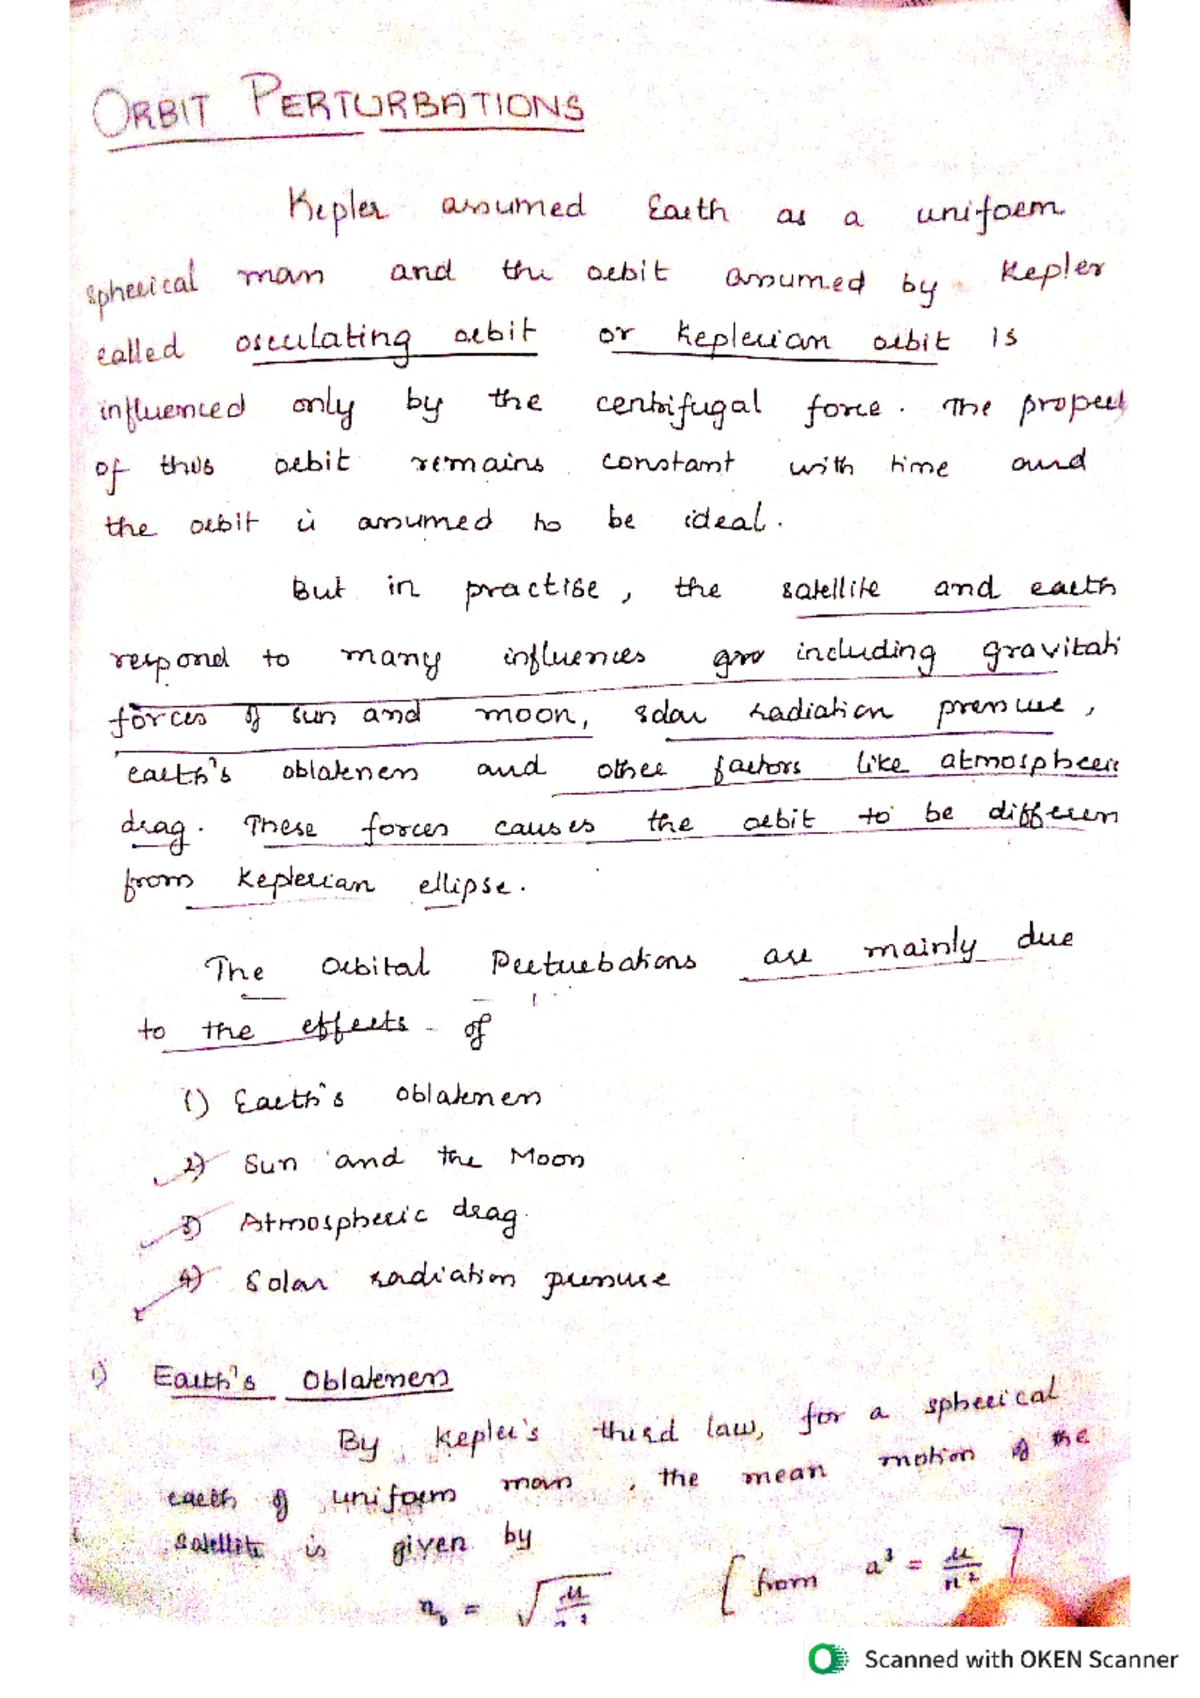 ORBIT PERTURBATIONS
Kepler assumed Earth as a uniform
spherical mass and the orbit assumed by Kepler
called osculating orbit or Keplerian orbit is
influenced only by the centrifugal force. The propert
of this orbit remains constant with time and
the orbit is assumed to be ideal.
But in practise, the satellite and earth
respond to many influences including gravitati
forces of sun and moon, solar radiation pressure,
earth's oblateness and other factors like atmospheric
drag. These forces causes the orbit to be differen
from Keplerian ellipse.
The Orbital Perturbations are mainly due
to the effects of
1) Earth's oblateness
2) Sun and the Moon
3) Atmospheric drag.
4) Solar radiation pressure
1) Earth's Oblateness
By Kepler's third law, for a spherical
earth of uniform mass, the mean motion of the
satellite is given by
n₀ = √μ/a³ [from a³ = μ/n²]
Scanned with OKEN Scanner